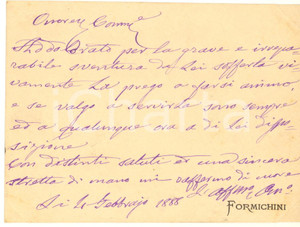 Onorev. Comm.e
per la grave e irrepa-
rabile sventura da Lei sofferta vi-
vamente La prego a farsi animo,
e se valgo a servirla sono sempre
ed a qualunque ora a di lei dispo-
sizione
Con distinti saluti ed una sincera
stretta di mano mi di cuore
Aff.mo
Li 4 Febbrajo 1888
FORMICHINI